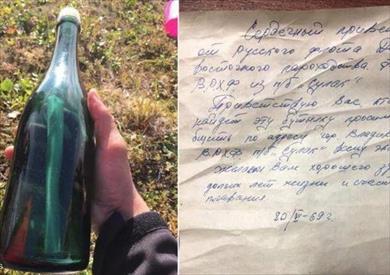 Сердечный привет
от русского флота Д
восточного пароходства
ВРХФ из п/б „Сулак"
Приветствую Вас, к
найдет эту бутылку просим
бщить по адресу гор Влади
ВРХФ п/б „Сулак" всему эк
желаем Вам хорошего з
долгих лет жизни и счас
плавания
20/VI-69г.